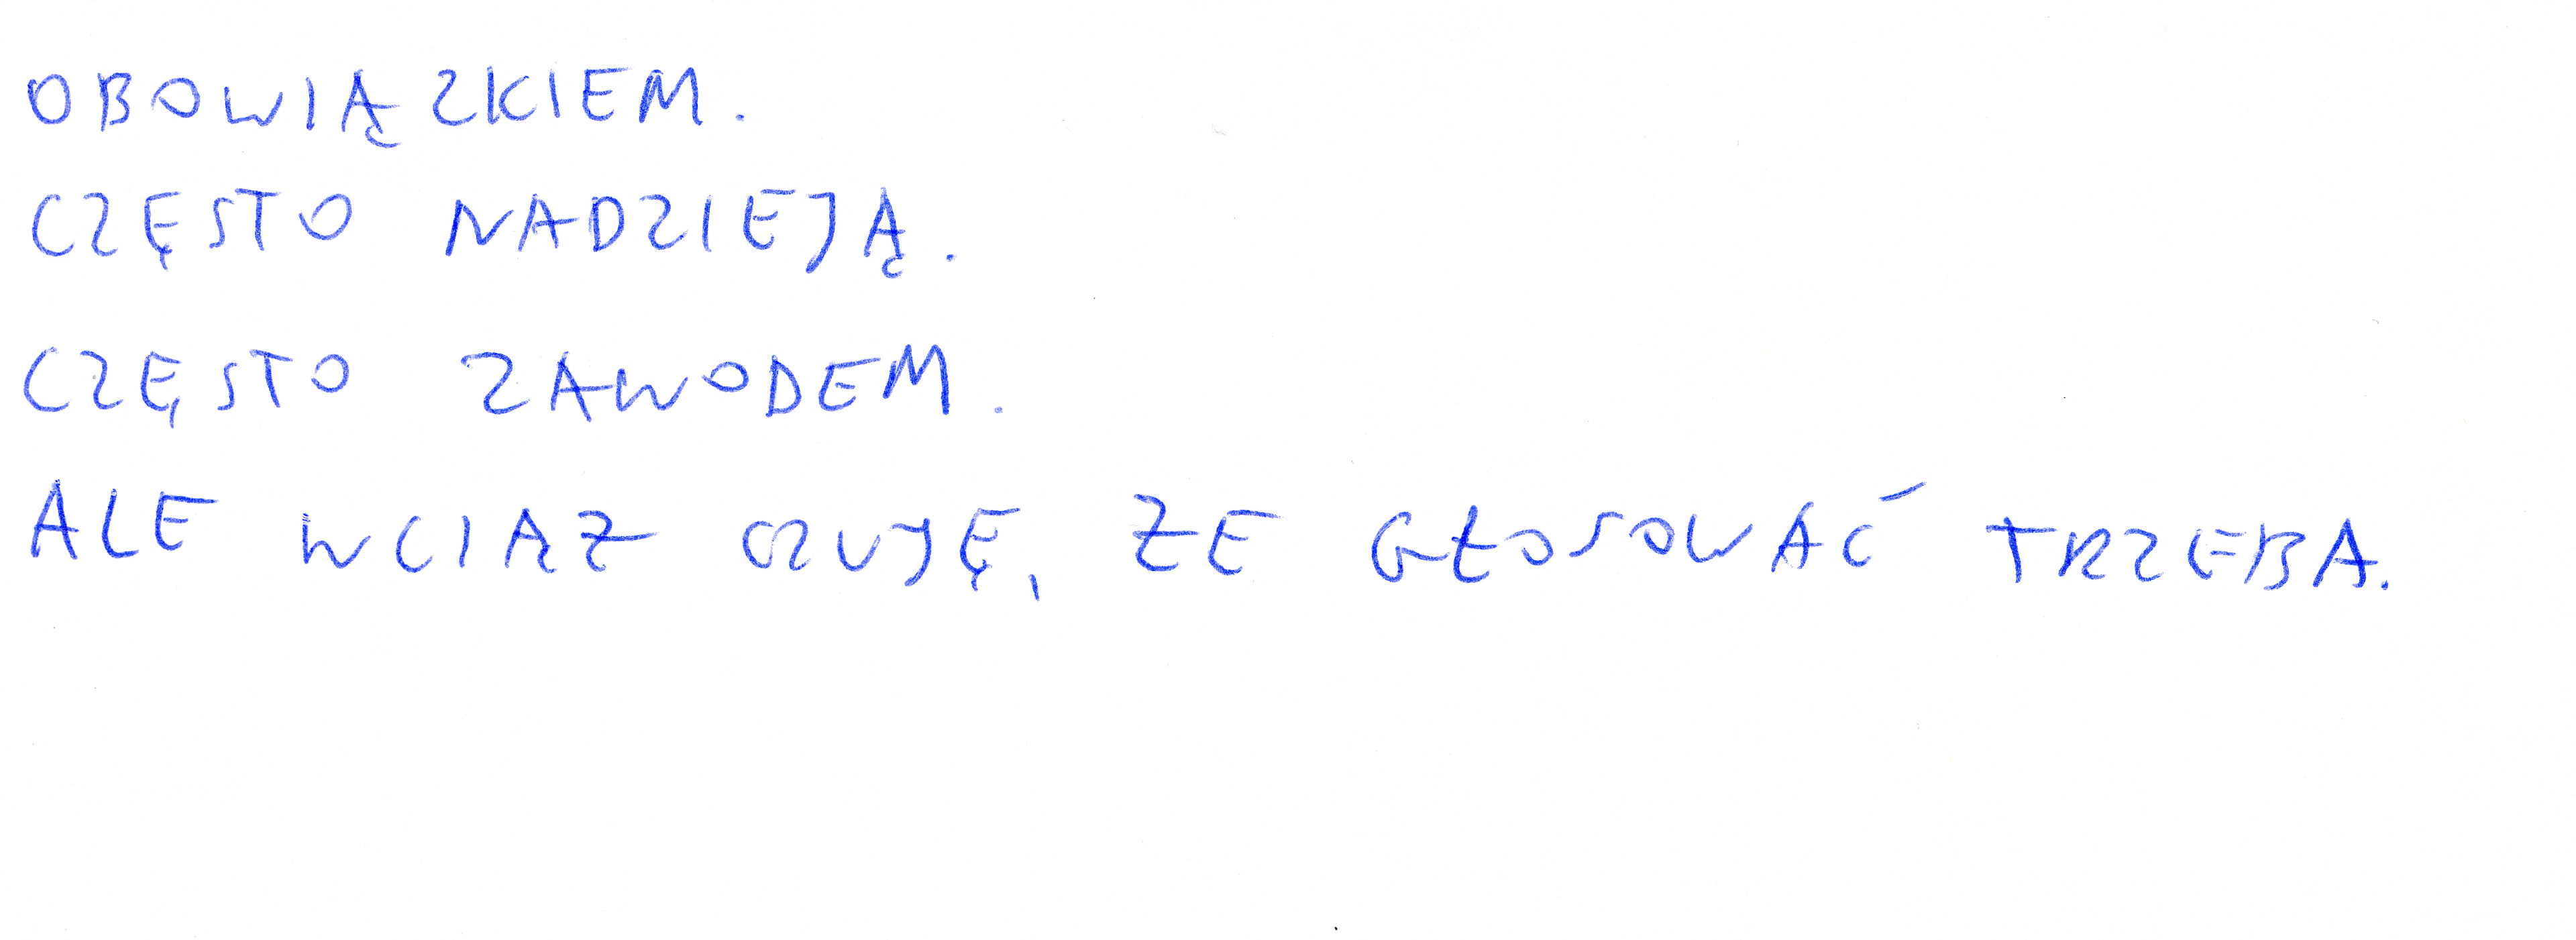 OBOWIĄZKIEM.
CZĘSTO NADZIEJĄ.
CZĘSTO ZAWODEM.
ALE WCIĄŻ CZUJĘ, ŻE GŁOSOWAĆ TRZEBA.